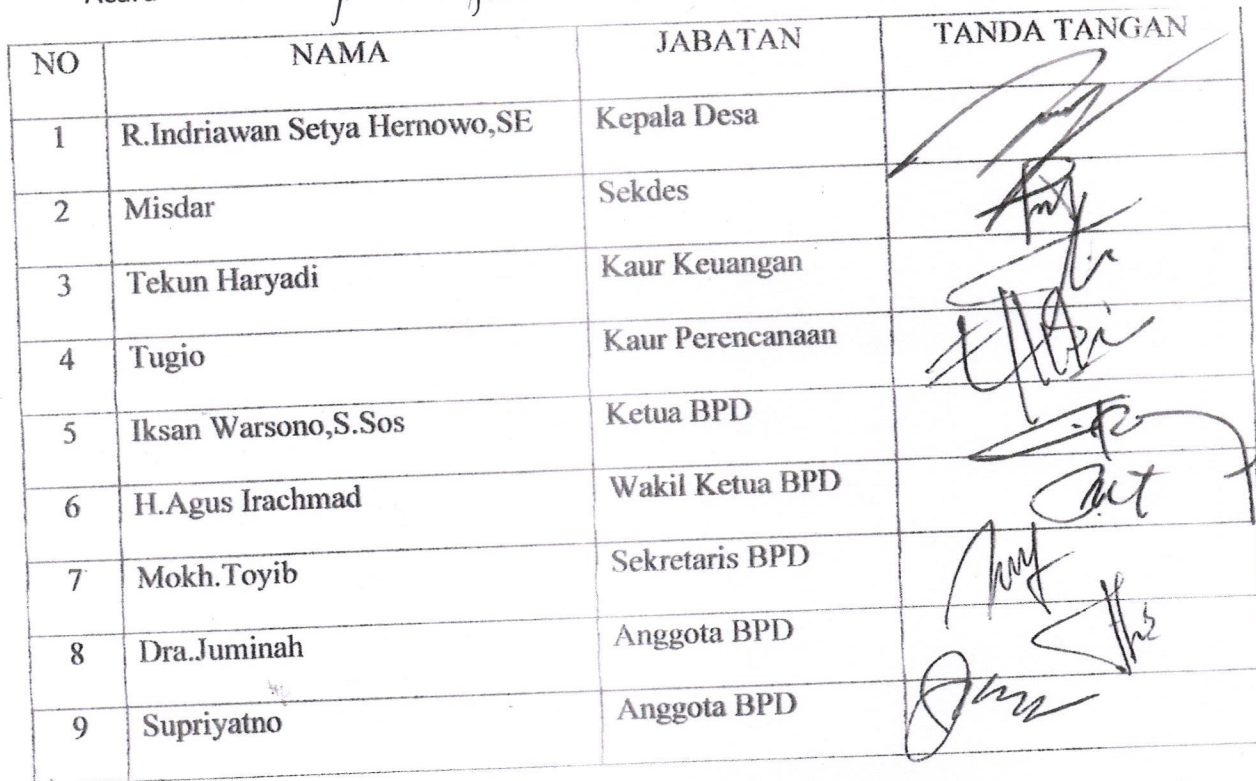 Acara
NO NAMA JABATAN TANDA TANGAN
1 R.Indriawan Setya Hernowo,SE Kepala Desa
2 Misdar Sekdes
3 Tekun Haryadi Kaur Keuangan
4 Tugio Kaur Perencanaan
5 Iksan Warsono,S.Sos Ketua BPD
6 H.Agus Irachmad Wakil Ketua BPD
7 Mokh.Toyib Sekretaris BPD
8 Dra.Juminah Anggota BPD
9 Supriyatno Anggota BPD